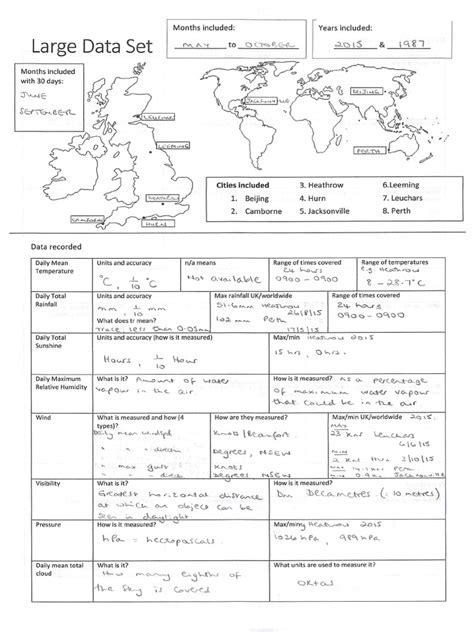 Large Data Set
Months included:
MAY to OCTOBER
Years included:
2015 & 1987
Months included
with 30 days:
JUNE
SEPTEMBER
LEUCHARS
LEEMING
HEATHROW
CAMBORNE
HURN
JACKSONVILLE
BEIJING
PERTH
Cities included
1. Beijing
2. Camborne
3. Heathrow
4. Hurn
5. Jacksonville
6.Leeming
7. Leuchars
8. Perth
Data recorded
Daily Mean
Temperature
Units and accuracy
°C, 1/10 °C
n/a means
Not available
Range of times covered
24 hours
0900 - 0900
Range of temperatures
e.g. Heathrow
8 - 28.7°C
Daily Total
Rainfall
Units and accuracy
mm, 1/10 mm
What does tr mean?
Trace less than 0.05mm
Max rainfall UK/worldwide
51.6mm Heathrow
26/8/15
102 mm Perth
17/5/15
Range of times covered
24 hours
0900 - 0900
Daily Total
Sunshine
Units and accuracy (how is it measured)
Hours, 1/10 Hour
Max/min Heathrow 2015
15 hrs, 0hrs.
Daily Maximum
Relative Humidity
What is it? Amount of water
vapour in the air
How is it measured? As a percentage
of maximum water vapour
that could be in the air
Wind
What is measured and how (4
types)?
Daily mean windspd
" " direcn
" max gust
" " direcn
How are they measured?
Knots/Beaufort
Degrees, NSEW
Knots
Degrees, NSEW
Max/min UK/worldwide 2015
MAX
23 Kns Leuchars
6/6/15
MIN
2 Kns Hurn 3/10/15
Perth
Jacksonville
Visibility
What is it?
Greatest horizontal distance
at which an object can be
seen in daylight
How is it measured?
Dm Decametres (= 10 metres)
Pressure
How is it measured?
hPa = hectopascals
Max/miny Heathrow 2015
1026 hPa, 989 hPa
Daily mean total
cloud
What is it?
How many eighths of
the sky is cloud
What units are used to measure it?
Oktas